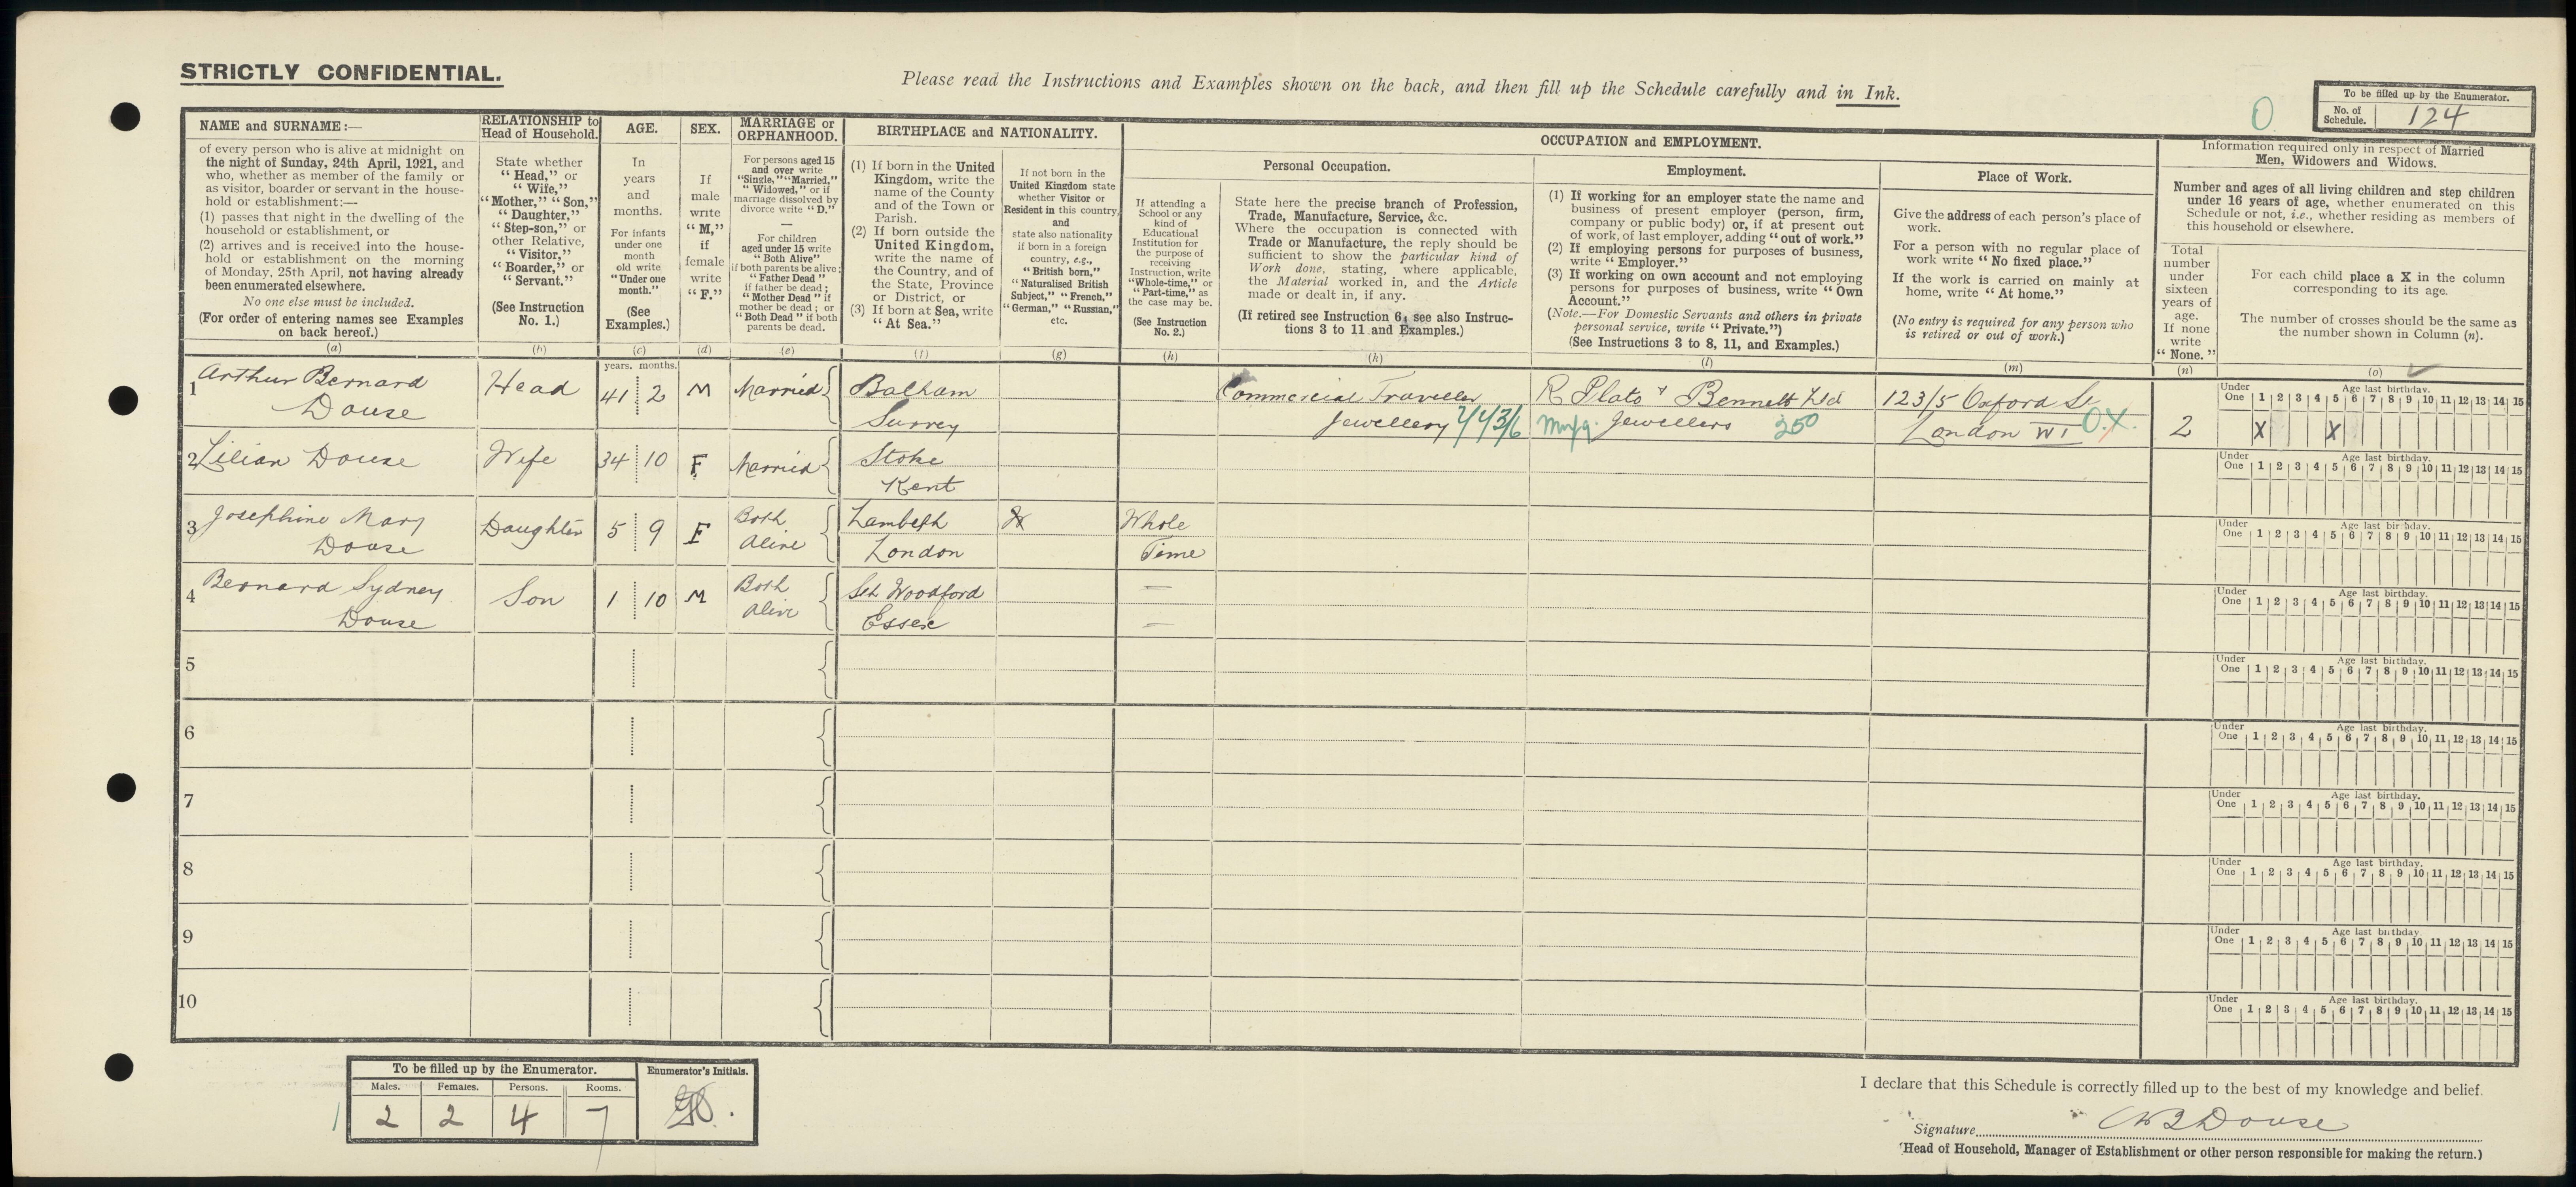 STRICTLY CONFIDENTIAL.
Please read the Instructions and Examples shown on the back, and then fill up the Schedule carefully and in Ink.
0
To be filled up by the Enumerator.
No. of Schedule. 124
NAME and SURNAME :—
of every person who is alive at midnight on
the night of Sunday, 24th April, 1921, and
who, whether as member of the family or
as visitor, boarder or servant in the house-
hold or establishment:—
(1) passes that night in the dwelling of the
household or establishment, or
(2) arrives and is received into the house-
hold or establishment on the morning
of Monday, 25th April, not having already
been enumerated elsewhere.
No one else must be included.
(For order of entering names see Examples
on back hereof.)
(a)
RELATIONSHIP to
Head of Household.
State whether
"Head," or
"Wife,"
"Mother," "Son,"
"Daughter,"
"Step-son," or
other Relative,
"Visitor,"
"Boarder," or
"Servant."
(See Instruction
No. 1.)
(b)
AGE.
In
years
and
months.
For infants
under one
month
old write
"Under one
month."
(See
Examples.)
(c)
SEX.
If
male
write
"M,"
if
female
write
"F."
(d)
MARRIAGE or
ORPHANHOOD.
For persons aged 15
and over write
"Single," "Married,"
"Widowed," or if
marriage dissolved by
divorce write "D."
—
For children
aged under 15 write
"Both Alive"
if both parents be alive;
"Father Dead"
if father be dead;
"Mother Dead" if
mother be dead; or
"Both Dead" if both
parents be dead.
(e)
BIRTHPLACE and NATIONALITY.
(1) If born in the United
Kingdom, write the
name of the County
and of the Town or
Parish.
(2) If born outside the
United Kingdom,
write the name of
the Country, and of
the State, Province
or District, or
(3) If born at Sea, write
"At Sea."
(f)
If not born in the
United Kingdom state
whether Visitor or
Resident in this country,
and
state also nationality
if born in a foreign
country, e.g.,
"British born,"
"Naturalised British
Subject," "French,"
"German," "Russian,"
etc.
(g)
OCCUPATION and EMPLOYMENT.
Personal Occupation.
If attending a
School or any
kind of
Educational
Institution for
the purpose of
receiving
Instruction, write
"Whole-time," or
"Part-time," as
the case may be.
(See Instruction
No. 2.)
(h)
State here the precise branch of Profession,
Trade, Manufacture, Service, &c.
Where the occupation is connected with
Trade or Manufacture, the reply should be
sufficient to show the particular kind of
Work done, stating, where applicable,
the Material worked in, and the Article
made or dealt in, if any.
(If retired see Instruction 6; see also Instruc-
tions 3 to 11 and Examples.)
(k)
Employment.
(1) If working for an employer state the name and
business of present employer (person, firm,
company or public body) or, if at present out
of work, of last employer, adding "out of work."
(2) If employing persons for purposes of business,
write "Employer."
(3) If working on own account and not employing
persons for purposes of business, write "Own
Account."
(Note.—For Domestic Servants and others in private
personal service, write "Private.")
(See Instructions 3 to 8, 11, and Examples.)
(l)
Place of Work.
Give the address of each person's place of
work.
For a person with no regular place of
work write "No fixed place."
If the work is carried on mainly at
home, write "At home."
(No entry is required for any person who
is retired or out of work.)
(m)
Information required only in respect of Married
Men, Widowers and Widows.
Number and ages of all living children and step children
under 16 years of age, whether enumerated on this
Schedule or not, i.e., whether residing as members of
this household or elsewhere.
Total
number
under
sixteen
years of
age.
If none
write
"None."
(n)
For each child place a X in the column
corresponding to its age.
The number of crosses should be the same as
the number shown in Column (n).
(o)
years. months.
1 Arthur Bernard Head 41 2 M Married Balham Commercial Traveller R Plato & Bennett Ltd 123/5 Oxford St
Douse Surrey Jewellery 744/3/6 Mnfg. Jewellers 250 London W1 O.X. 2
Under One Age last birthday. 1 2 3 4 5 6 7 8 9 10 11 12 13 14 15
X X
2 Lilian Douse Wife 34 10 F Married Stoke
Kent
Under One Age last birthday. 1 2 3 4 5 6 7 8 9 10 11 12 13 14 15
3 Josephine Mary Daughter 5 9 F Both Lambeth Whole
Douse Alive London Time
Under One Age last birthday. 1 2 3 4 5 6 7 8 9 10 11 12 13 14 15
4 Bernard Sydney Son 1 10 M Both Sth Woodford —
Douse Alive Essex —
Under One Age last birthday. 1 2 3 4 5 6 7 8 9 10 11 12 13 14 15
5
Under One Age last birthday. 1 2 3 4 5 6 7 8 9 10 11 12 13 14 15
6
Under One Age last birthday. 1 2 3 4 5 6 7 8 9 10 11 12 13 14 15
7
Under One Age last birthday. 1 2 3 4 5 6 7 8 9 10 11 12 13 14 15
8
Under One Age last birthday. 1 2 3 4 5 6 7 8 9 10 11 12 13 14 15
9
Under One Age last birthday. 1 2 3 4 5 6 7 8 9 10 11 12 13 14 15
10
Under One Age last birthday. 1 2 3 4 5 6 7 8 9 10 11 12 13 14 15
To be filled up by the Enumerator.
Males. Females. Persons. Rooms.
1 2 2 4 7
Enumerator's Initials.
I declare that this Schedule is correctly filled up to the best of my knowledge and belief.
Signature Douse
(Head of Household, Manager of Establishment or other person responsible for making the return.)